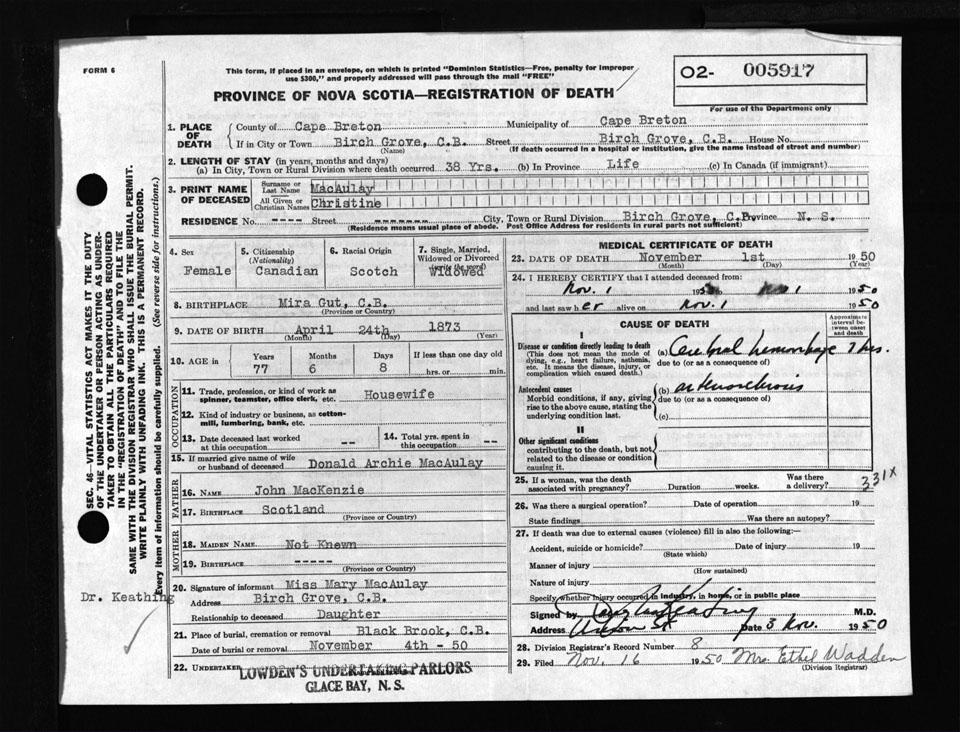 FORM 6
This form, if placed in an envelope, on which is printed "Dominion Statistics—Free, penalty for improper
use $300," and properly addressed will pass through the mail "FREE"
O2- 005917
For use of the Department only
PROVINCE OF NOVA SCOTIA—REGISTRATION OF DEATH
SEC. 46—VITAL STATISTICS ACT MAKES IT THE DUTY
OF THE UNDERTAKER OR PERSON ACTING AS UNDER-
TAKER TO OBTAIN ALL THE PARTICULARS REQUIRED
IN THE "REGISTRATION OF DEATH" AND TO FILE THE
SAME WITH THE DIVISION REGISTRAR WHO SHALL ISSUE THE BURIAL PERMIT.
WRITE PLAINLY WITH UNFADING INK. THIS IS A PERMANENT RECORD.
Every item of information should be carefully supplied. (See reverse side for instructions.)
1. PLACE OF DEATH County of Cape Breton Municipality of Cape Breton
If in City or Town Birch Grove, C.B. Street Birch Grove, C.B. House No.
(Name) (If death occurred in a hospital or institution, give the name instead of street and number)
2. LENGTH OF STAY (in years, months and days)
(a) In City, Town or Rural Division where death occurred 38 Yrs. (b) In Province Life (c) In Canada (if immigrant)
3. PRINT NAME OF DECEASED Surname or Last Name MacAulay
All Given or Christian Names Christine
RESIDENCE No. ---- Street ------- City, Town or Rural Division Birch Grove, C. Province N. S.
(Residence means usual place of abode. Post Office Address for residents in rural parts not sufficient)
4. Sex Female
5. Citizenship (Nationality) Canadian
6. Racial Origin Scotch
7. Single, Married, Widowed or Divorced (write the word) Widowed
8. BIRTHPLACE Mira Gut, C.B.
(Province or Country)
9. DATE OF BIRTH April 24th 1873
(Month) (Day) (Year)
10. AGE in Years Months Days If less than one day old
77 6 8 hrs. or min.
OCCUPATION
11. Trade, profession, or kind of work as
spinner, teamster, office clerk, etc. Housewife
12. Kind of industry or business, as cotton-
mill, lumbering, bank, etc.
13. Date deceased last worked
at this occupation -- 14. Total yrs. spent in
this occupation --
15. If married give name of wife
or husband of deceased Donald Archie MacAulay
FATHER
16. NAME John MacKenzie
17. BIRTHPLACE Scotland
(Province or Country)
MOTHER
18. MAIDEN NAME Not Known
19. BIRTHPLACE -----
(Province or Country)
20. Signature of informant Miss Mary MacAulay
Address Birch Grove, C.B.
Relationship to deceased Daughter
Dr. Keathing
21. Place of burial, cremation or removal Black Brook, C.B.
Date of burial or removal November 4th - 50
22. UNDERTAKER LOWDEN'S UNDERTAKING PARLORS
GLACE BAY, N. S.
MEDICAL CERTIFICATE OF DEATH
23. DATE OF DEATH November 1st 1950
(Month) (Day) (Year)
24. I HEREBY CERTIFY that I attended deceased from:
Nov. 1 1950
and last saw her alive on Nov. 1 1950
CAUSE OF DEATH
Approximate interval between onset and death
I
Disease or condition directly leading to death
(This does not mean the mode of
dying, e.g., heart failure, asthenia,
etc. It means the disease, injury, or
complication which caused death.)
(a) Cerebral hemorrhage 7 hrs.
due to (or as a consequence of)
Antecedent causes
Morbid conditions, if any, giving
rise to the above cause, stating the
underlying condition last.
(b) arteriosclerosis
due to (or as a consequence of)
(c)
II
Other significant conditions
contributing to the death, but not
related to the disease or condition
causing it.
25. If a woman, was the death
associated with pregnancy? Duration weeks. Was there
a delivery?
331X
26. Was there a surgical operation? Date of operation 19
State findings Was there an autopsy?
27. If death was due to external causes (violence) fill in also the following:—
Accident, suicide or homicide? Date of injury 19
(State which)
Manner of injury
(How sustained)
Nature of injury
Specify whether injury occurred in industry, in home, or in public place
Signed by M.D.
Address Date 3 Nov. 1950
28. Division Registrar's Record Number 8
29. Filed Nov. 16 1950 Mrs. Ethel Wadden
(Division Registrar)